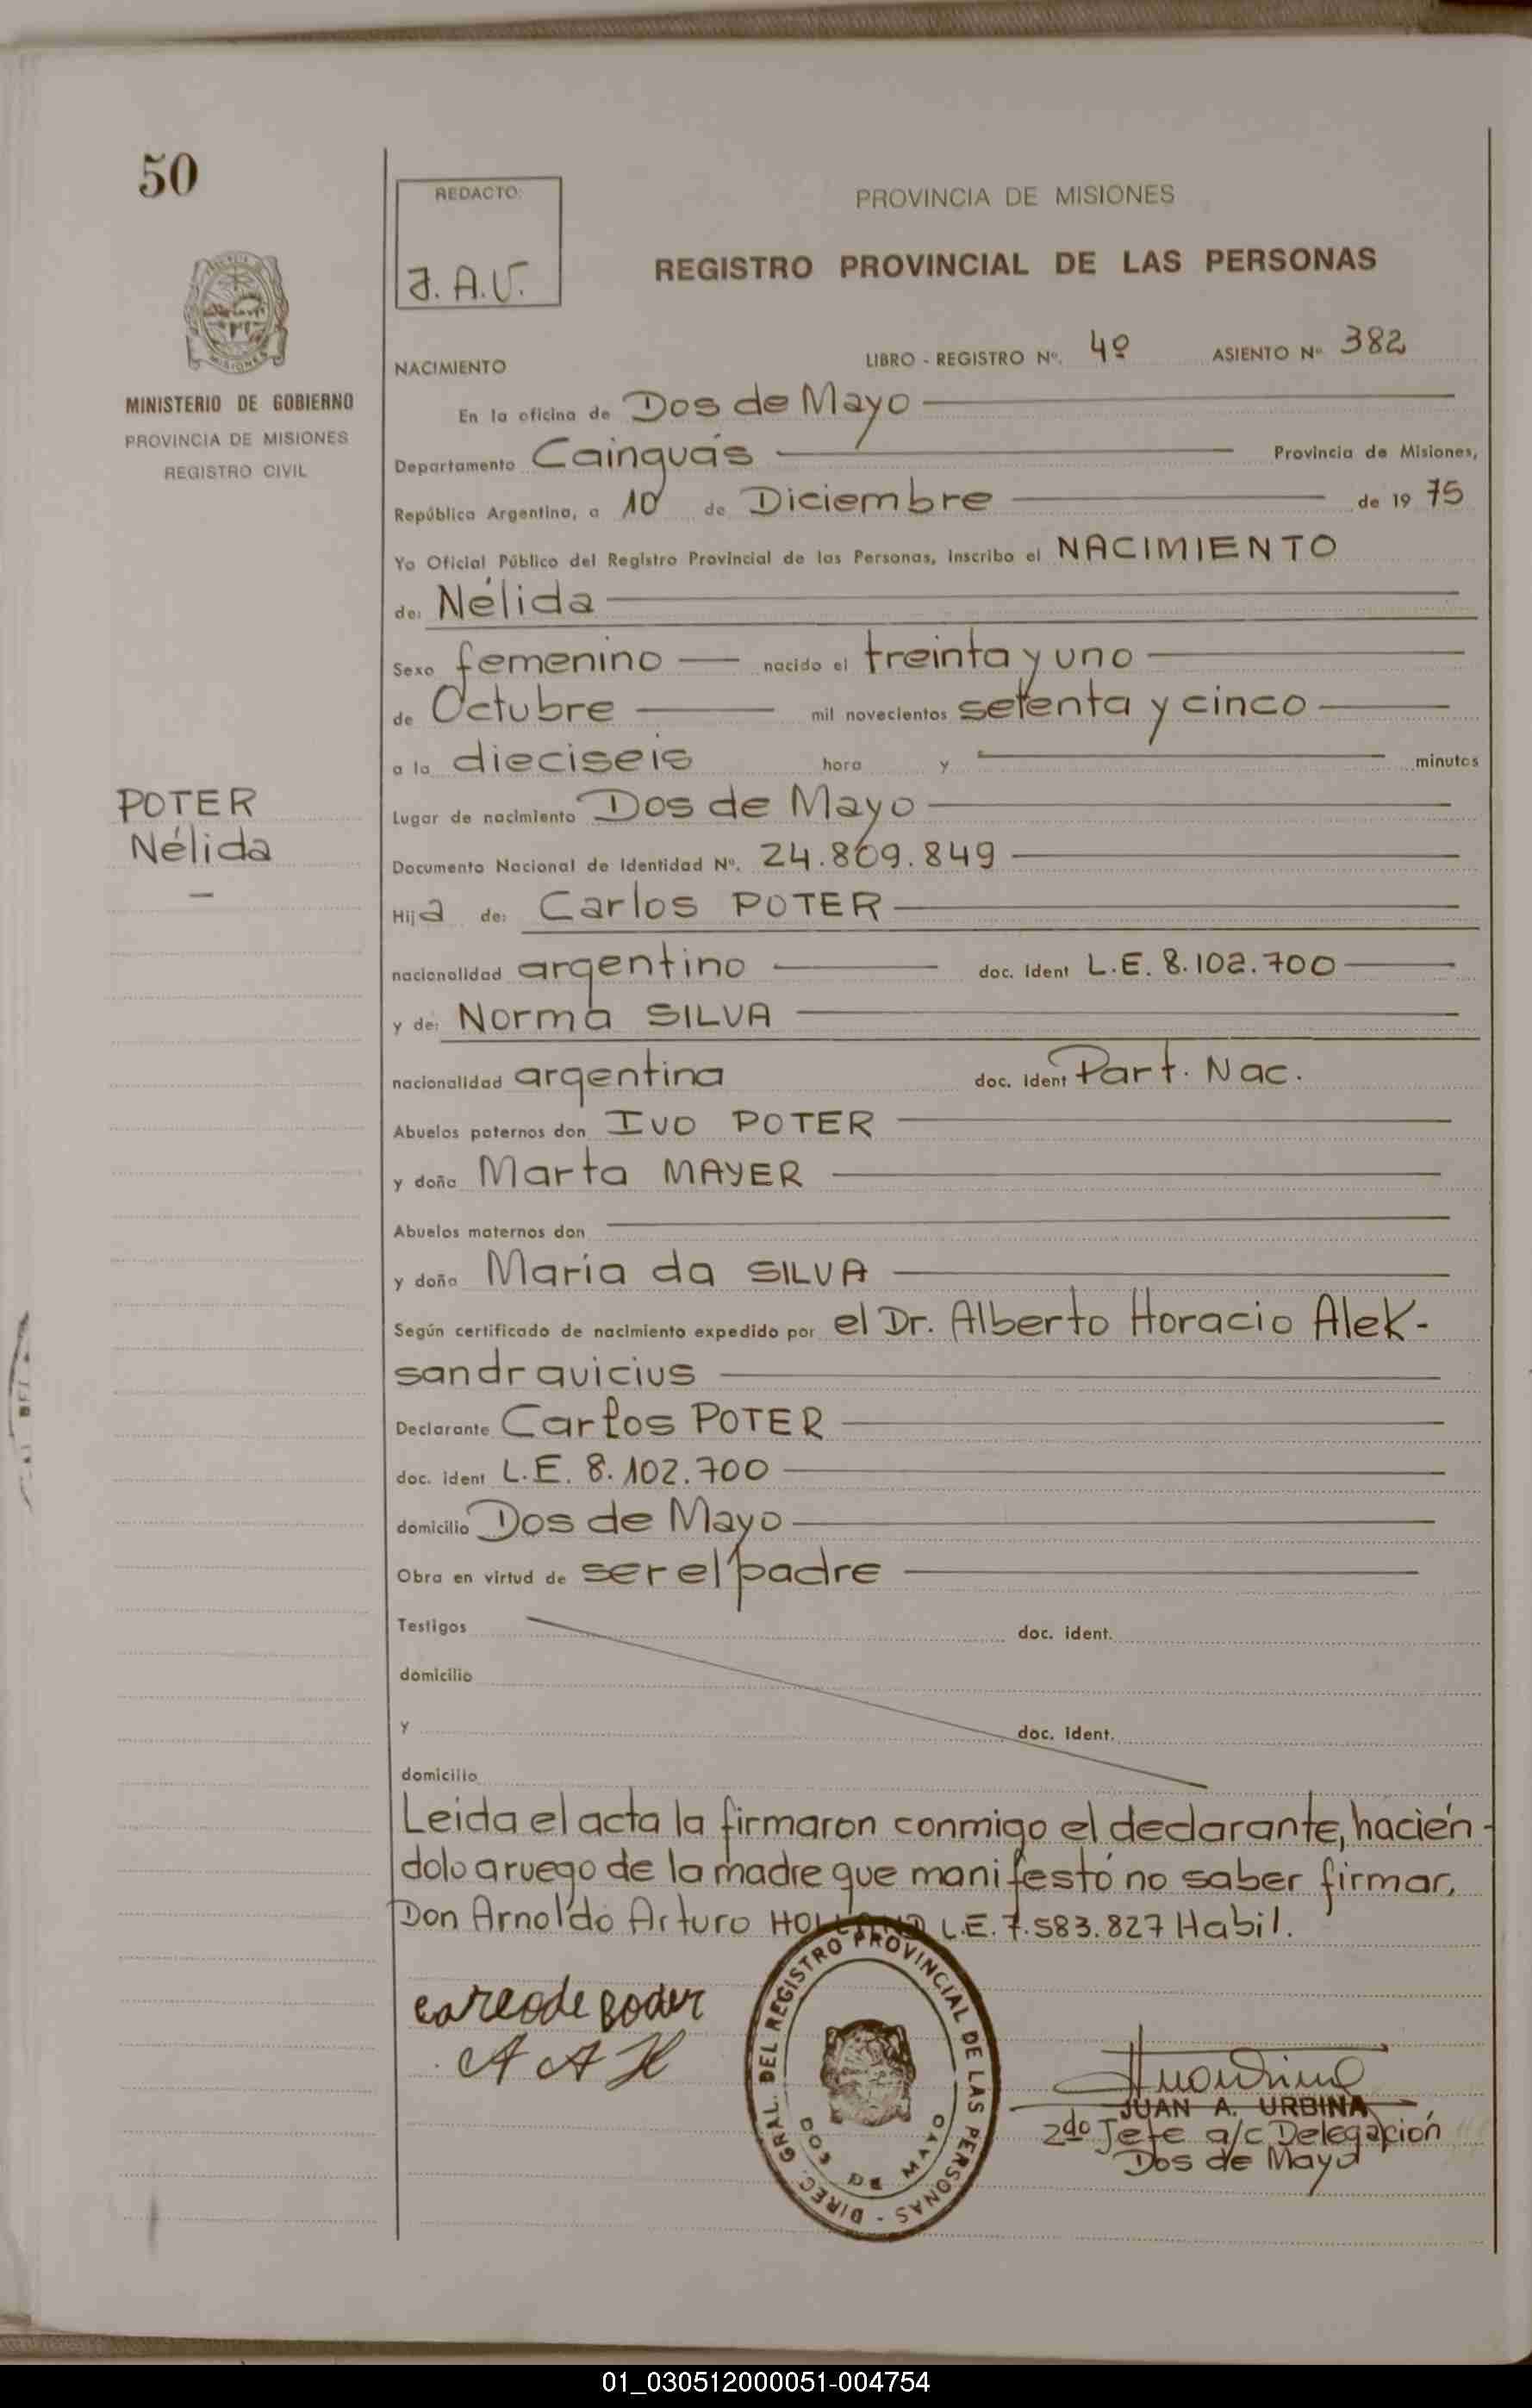 50
REDACTO:
J. A. U.
PROVINCIA DE MISIONES
REGISTRO PROVINCIAL DE LAS PERSONAS
MINISTERIO DE GOBIERNO
PROVINCIA DE MISIONES
REGISTRO CIVIL
NACIMIENTO LIBRO - REGISTRO Nº. 4º ASIENTO Nº 382
En la oficina de Dos de Mayo
Departamento Cainguás Provincia de Misiones,
República Argentina, a 10 de Diciembre de 19 75
Yo Oficial Público del Registro Provincial de las Personas, inscribo el NACIMIENTO
de: Nélida
Sexo femenino nacido el treinta y uno
de Octubre mil novecientos setenta y cinco
a la dieciseis hora y minutos
POTER
Nélida
Lugar de nacimiento Dos de Mayo
Documento Nacional de Identidad Nº. 24.809.849
Hija de: Carlos POTER
nacionalidad argentino doc. ident L.E. 8.102.700
y de: Norma SILVA
nacionalidad argentina doc. ident Part. Nac.
Abuelos paternos don IVO POTER
y doña Marta MAYER
Abuelos maternos don
y doña María da SILVA
Según certificado de nacimiento expedido por el Dr. Alberto Horacio Alek-
sandravicius
Declarante Carlos POTER
doc. ident L.E. 8.102.700
domicilio Dos de Mayo
Obra en virtud de ser el padre
Testigos doc. ident.
domicilio
y doc. ident.
domicilio
Leida el acta la firmaron conmigo el declarante, hacién-
dolo a ruego de la madre que manifestó no saber firmar,
Don Arnoldo Arturo HOLLAND L.E. 7.583.827 Habil.
A A H
DIREC. GRAL. DEL REGISTRO PROVINCIAL DE LAS PERSONAS -
DOS DE MAYO
JUAN A. URBINA
2do Jefe a/c Delegación
Dos de Mayo
01_030512000051-004754